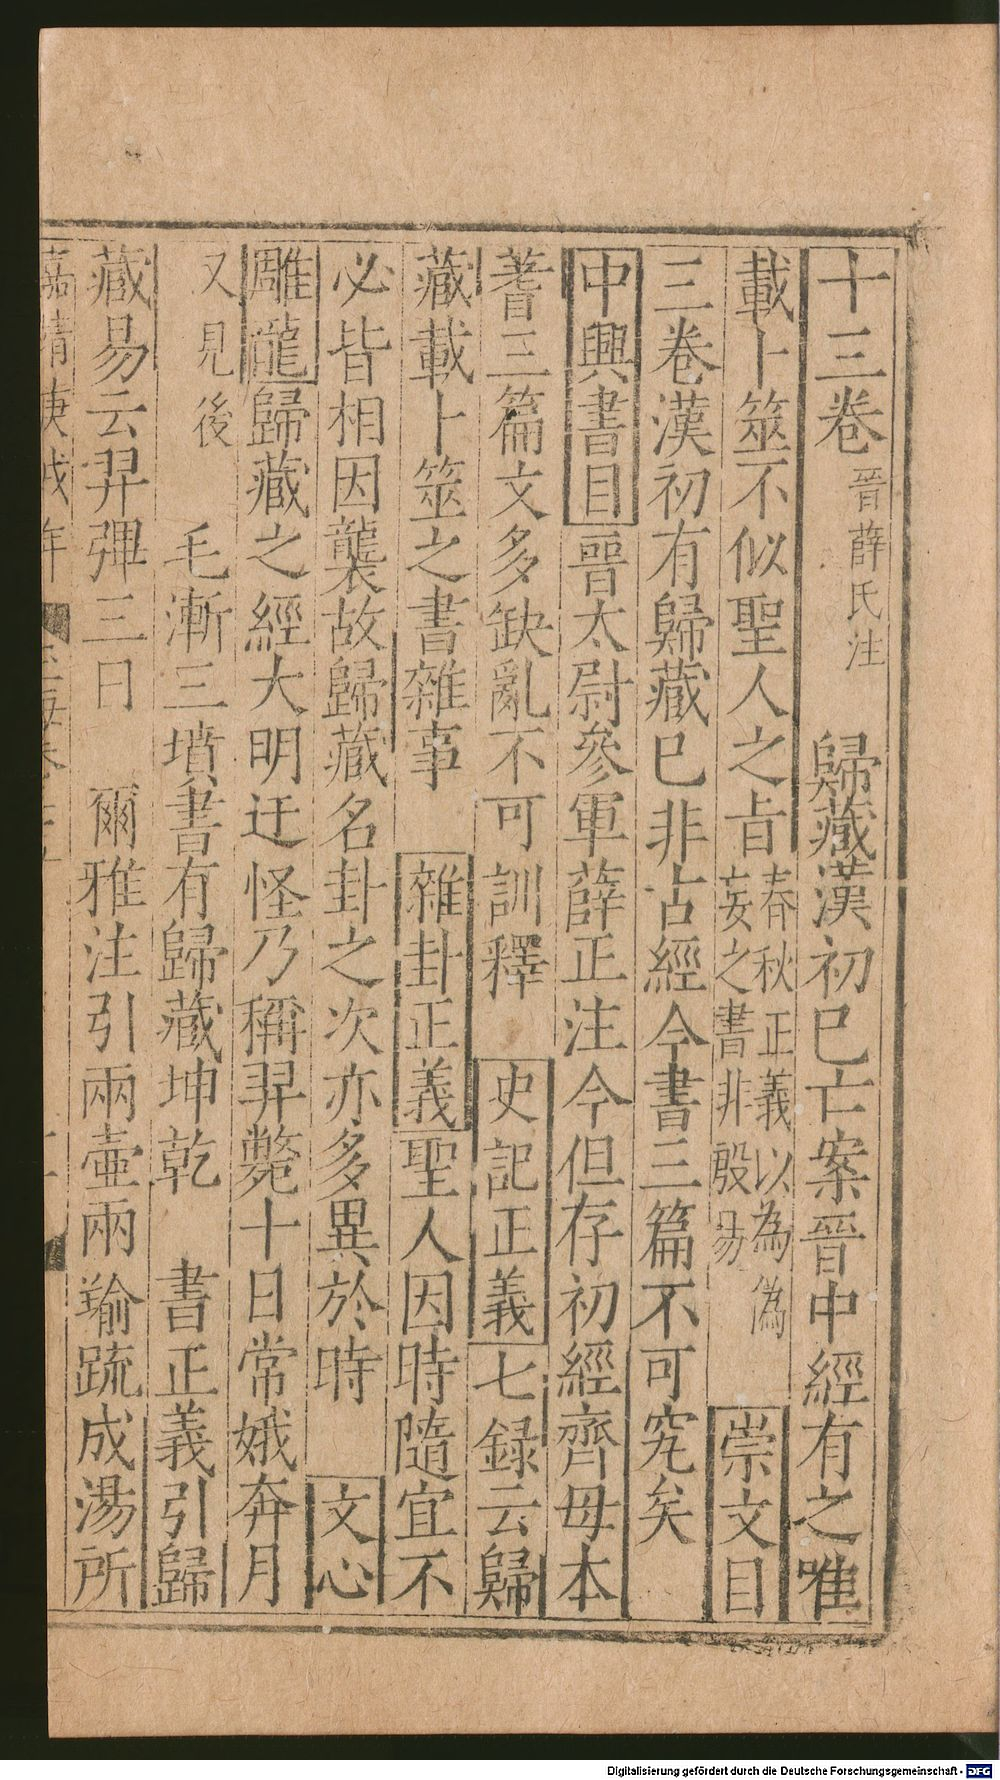 十三卷晉薛氏注 歸藏漢初已亡案晉中經有之唯
載卜筮不似聖人之旨春秋正義以為偽妄之書非殷易 崇文目
三卷漢初有歸藏已非古經今書三篇不可究矣
中興書目晉太尉參軍薛正注今但存初經齊母本
蓍三篇文多缺亂不可訓釋 史記正義七録云歸
藏載卜筮之書雜事 雜卦正義聖人因時隨宜不
必皆相因襲故歸藏名卦之次亦多異於時 文心
雕龍歸藏之經大明迂怪乃稱羿斃十日常娥奔月
又見後 毛漸三墳書有歸藏坤乾 書正義引歸
藏易云羿彈三日 爾雅注引兩壺兩羭疏成湯所
嘉靖庚戌年
Digitalisierung gefördert durch die Deutsche Forschungsgemeinschaft - DFG